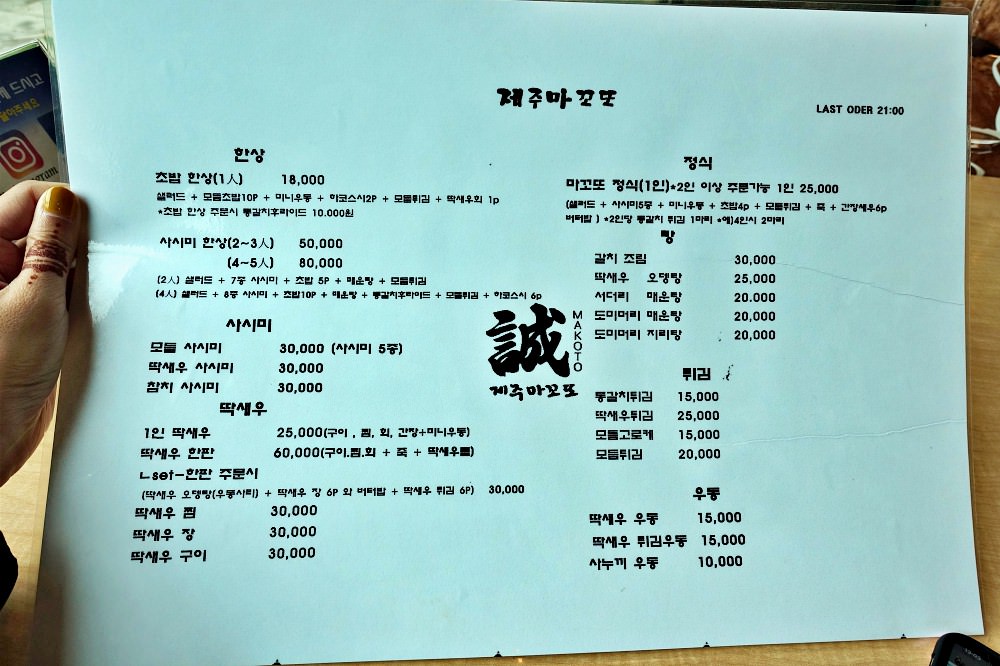 게 드시고
제주마꼬또
LAST ODER 21:00
한상
초밥 한상(1人) 18,000
샐러드 + 모듬초밥10P + 미니우동 + 하코스시2P + 모듬튀김 + 딱새우회 1p
*초밥 한상 주문시 통갈치후라이드 10.000원
사시미 한상(2~3人) 50,000
(4~5人) 80,000
(2人) 샐러드 + 7종 사시미 + 초밥 5P + 매운탕 + 모듬튀김
(4人) 샐러드 + 8종 사시미 + 초밥10P + 매운탕 + 통갈치후라이드 + 모듬튀김 + 하코스시 6p
사시미
모듬 사시미 30,000 (사시미 5종)
딱새우 사시미 30,000
참치 사시미 30,000
딱새우
1인 딱새우 25,000(구이 , 찜, 회, 간장+미니우동)
딱새우 한판 60,000(구이.찜.회 + 죽 + 딱새우롤)
ㄴset-한판 주문시
(딱새우 오뎅탕(우동사리) + 딱새우 장 6P 와 버터밥 + 딱새우 튀김 6P) 30,000
딱새우 찜 30,000
딱새우 장 30,000
딱새우 구이 30,000
誠
MAKOTO
제주마꼬또
정식
마꼬또 정식(1인)*2인 이상 주문가능 1인 25,000
(샐러드 + 사시미5종 + 미니우동 + 초밥4p + 모듬튀김 + 죽 + 간장새우6p
버터밥 ) *2인당 통갈치 튀김 1마리 *예)4인시 2마리
탕
갈치 조림 30,000
딱새우 오뎅탕 25,000
서더리 매운탕 20.000
도미머리 매운탕 20,000
도미머리 지리탕 20,000
튀김
통갈치튀김 15,000
딱새우튀김 25,000
모듬고로케 15,000
모듬튀김 20,000
우동
딱새우 우동 15,000
딱새우 튀김우동 15,000
사누끼 우동 10,000